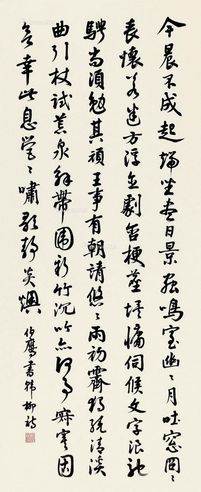 今晨不成起端坐盡日景蟲鳴室幽〻月吐窗冏〻
喪懷若迷方浮念劇含梗塵埃慵伺候文字浪馳
騁尚須勉其頑王事有朝請悠〻雨初霽獨繞清溪
曲引杖試荒泉解帶圍新竹沉吟亦何事寂寞固
所欲幸此息營〻嘯歌靜炎燠 伯鷹書韓柳詩